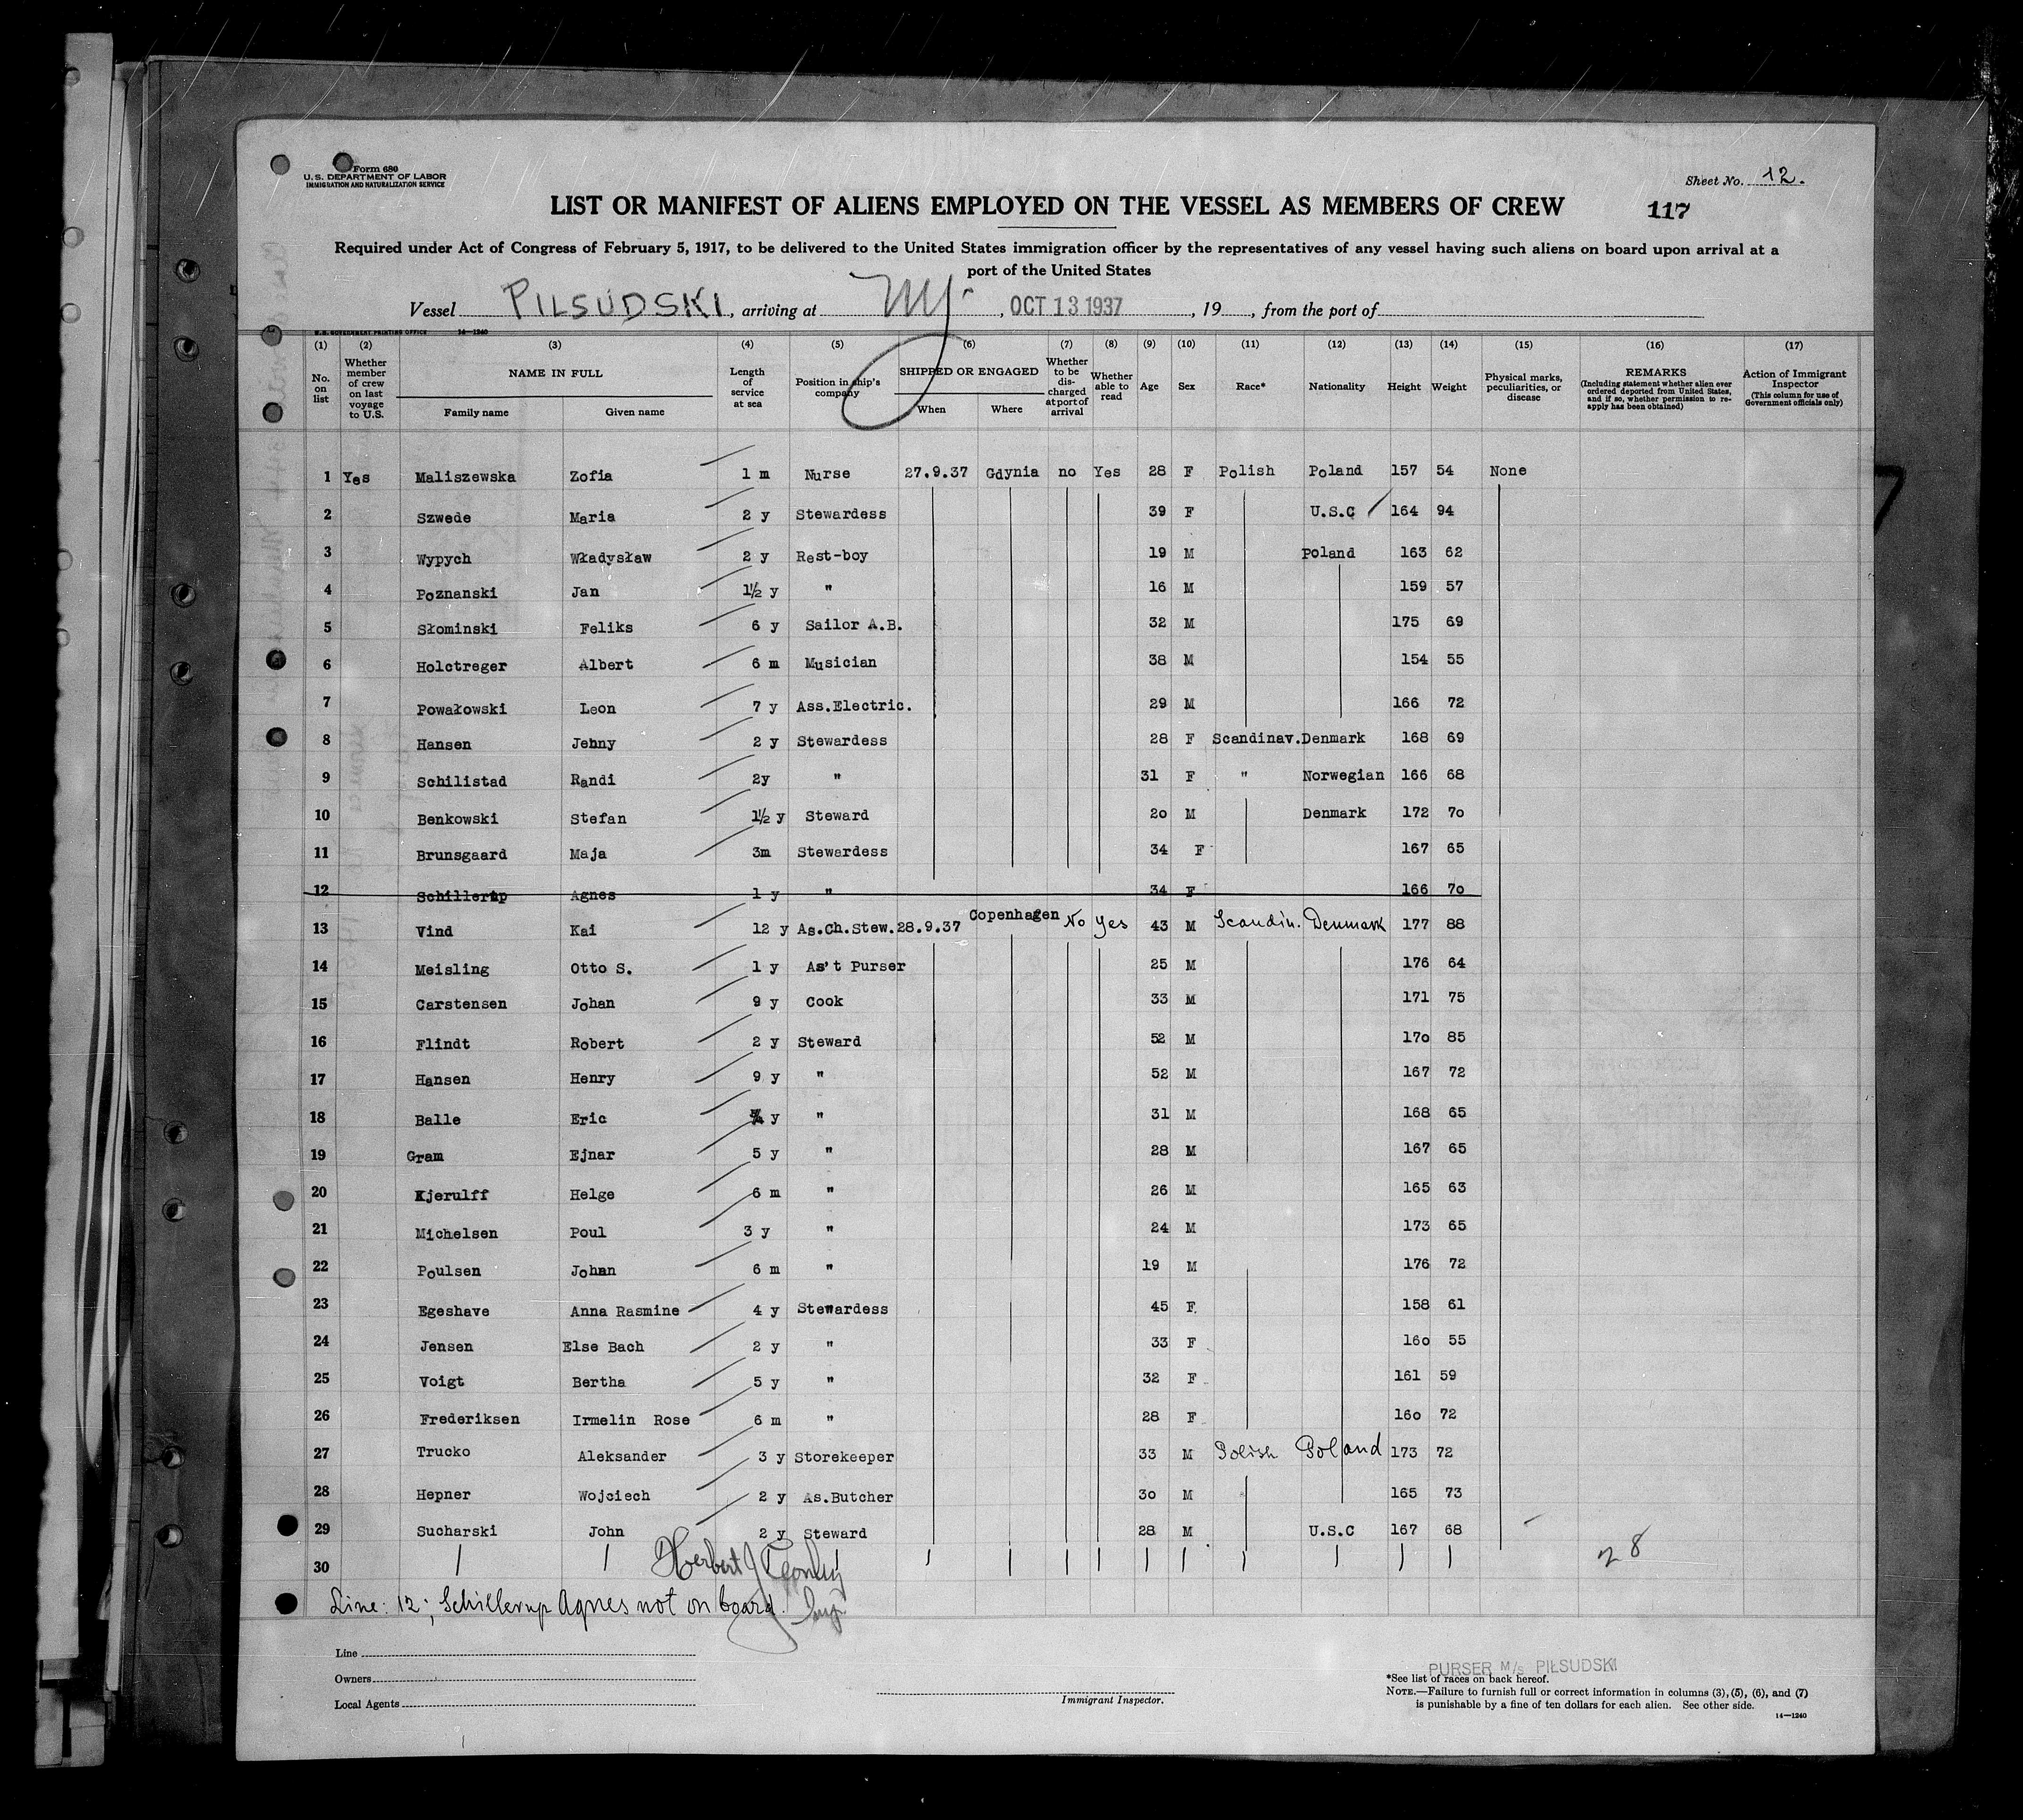 Form 680
U. S. DEPARTMENT OF LABOR
IMMIGRATION AND NATURALIZATION SERVICE
Sheet No. 12.
LIST OR MANIFEST OF ALIENS EMPLOYED ON THE VESSEL AS MEMBERS OF CREW 117
Required under Act of Congress of February 5, 1917, to be delivered to the United States immigration officer by the representatives of any vessel having such aliens on board upon arrival at a
port of the United States
Vessel PILSUDSKI, arriving at NY. , OCT 13 1937 , 19 , from the port of
U.S. GOVERNMENT PRINTING OFFICE 14—1240
(1) (2) (3) (4) (5) (6) (7) (8) (9) (10) (11) (12) (13) (14) (15) (16) (17)
No. on list
Whether member of crew on last voyage to U.S.
NAME IN FULL
Family name Given name
Length of service at sea
Position in ship's company
SHIPPED OR ENGAGED
When Where
Whether to be discharged at port of arrival
Whether able to read
Age Sex Race* Nationality Height Weight
Physical marks, peculiarities, or disease
REMARKS
(Including statement whether alien ever ordered deported from United States, and if so, whether permission to re-apply has been obtained)
Action of Immigrant Inspector
(This column for use of Government officials only)
1 Yes Maliszewska Zofia 1 m Nurse 27.9.37 Gdynia no Yes 28 F Polish Poland 157 54 None
2 Szwede Maria 2 y Stewardess 39 F U.S.C 164 94
3 Wypych Władysław 2 y Rest-boy 19 M Poland 163 62
4 Poznanski Jan 1½ y " 16 M 159 57
5 Słominski Feliks 6 y Sailor A.B. 32 M 175 69
6 Holctreger Albert 6 m Musician 38 M 154 55
7 Powałowski Leon 7 y Ass.Electric. 29 M 166 72
8 Hansen Jehny 2 y Stewardess 28 F Scandinav. Denmark 168 69
9 Schilistad Randi 2y " 31 F " Norwegian 166 68
10 Benkowski Stefan 1½ y Steward 20 M Denmark 172 70
11 Brunsgaard Maja 3m Stewardess 34 F 167 65
12 Schillerup Agnes 1 y " 34 F 166 70
13 Vind Kai 12 y As.Ch.Stew. 28.9.37 Copenhagen No Yes 43 M Scandin. Denmark 177 88
14 Meisling Otto S. 1 y As't Purser 25 M 176 64
15 Carstensen Johan 9 y Cook 33 M 171 75
16 Flindt Robert 2 y Steward 52 M 170 85
17 Hansen Henry 9 y " 52 M 167 72
18 Balle Eric y " 31 M 168 65
19 Gram Ejnar 5 y " 28 M 167 65
20 Kjerulff Helge 6 m " 26 M 165 63
21 Michelsen Poul 3 y " 24 M 173 65
22 Poulsen Johan 6 m " 19 M 176 72
23 Egeshave Anna Rasmine 4 y Stewardess 45 F. 158 61
24 Jensen Else Bach 2 y " 33 F 160 55
25 Voigt Bertha 5 y " 32 F 161 59
26 Frederiksen Irmelin Rose 6 m " 28 F 160 72
27 Trucko Aleksander 3 y Storekeeper 33 M Polish Poland 173 72
28 Hepner Wojciech 2 y As.Butcher 30 M 165 73
29 Sucharski John 2 y Steward 28 M U.S.C 167 68
30 Herbert J 28
Line: 12; Schillerup Agnes not on board.
Line
Owners
Local Agents
Immigrant Inspector.
PURSER M/s PIŁSUDSKI
*See list of races on back hereof.
NOTE.—Failure to furnish full or correct information in columns (3), (5), (6), and (7)
is punishable by a fine of ten dollars for each alien. See other side.
14—1240